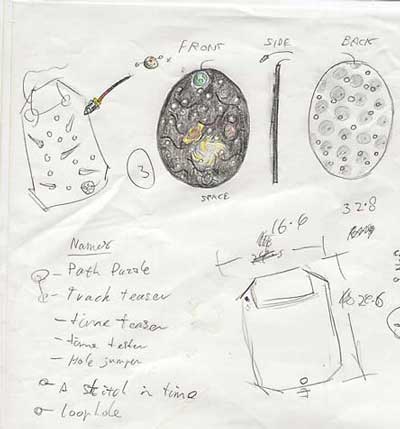 FRONT SIDE BACK
3
SPACE
32.8
16.6
Names
- Path Puzzle
- Track teaser
- time teaser
- time tester
- Hole jumper
- A stitch in time
- loophole